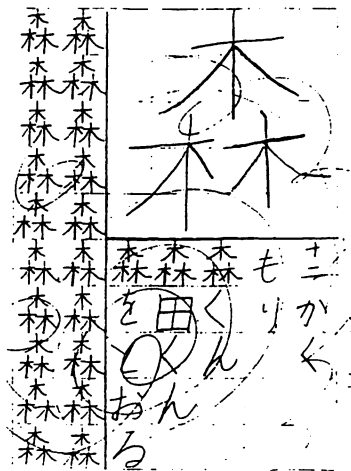 森
十二かく
もり
森くん
森田くん
森をとおる
森森森森森森森森森森
森森森森森森森森森森